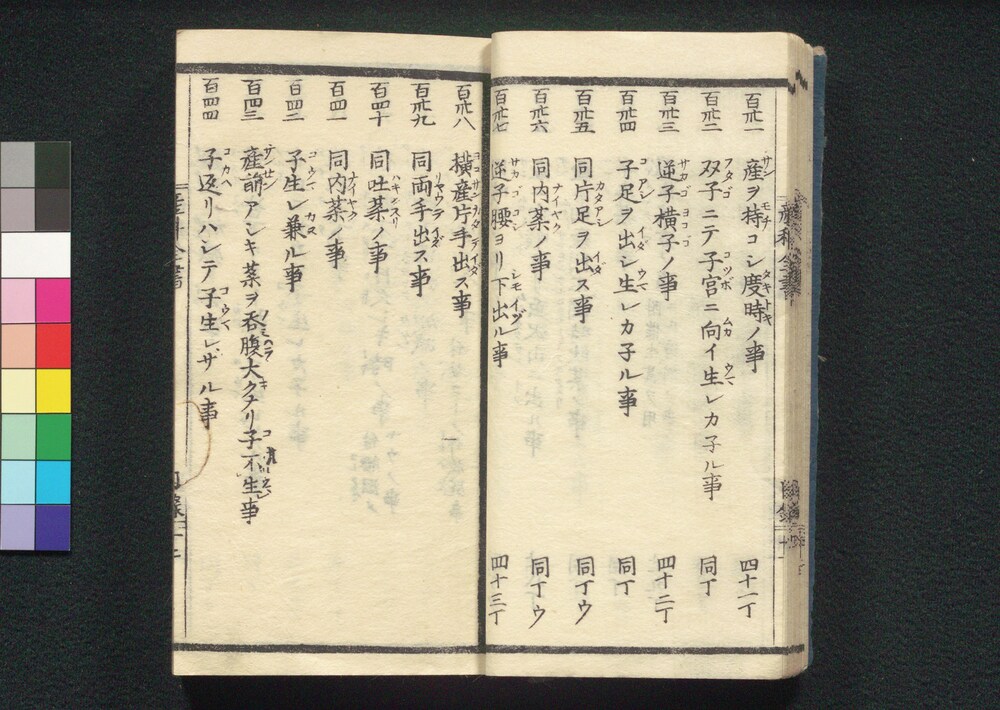 百卅一 産ヲ持コシ度時ノ事 四十一丁
百卅二 双子ニテ子宮ニ向イ生レカ子ル事 同丁
百卅三 逆子横子ノ事 四十二丁
百卅四 子足ヲ出シ生レカ子ル事 同丁
百卅五 同片足ヲ出ス事 同丁ウ
百卅六 同内薬ノ事 同丁ウ
百卅七 逆子腰ヨリ下出ル事 四十三丁
百卅八 横産片手出ス事
百卅九 同両手出ス事
百四十 同吐薬ノ事
百四一 同内薬ノ事
百四二 子生レ兼ル事
百四三 産前アシキ薬ヲ呑腹大クナリ子不生事
百四四 子返リハシテ子生レザル事